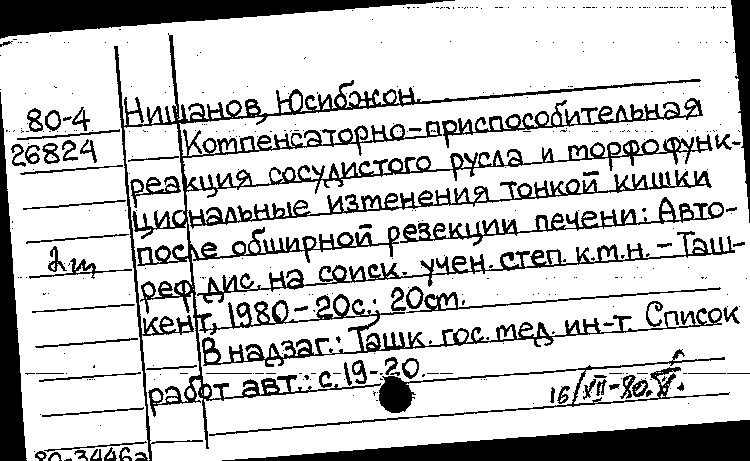 80-4 Нишанов, Юсибжон.
26824 Компенсаторно-приспособительная
реакция сосудистого русла и морфофунк-
циональные изменения тонкой кишки
после обширной резекции печени: Авто-
реф дис. на соиск. учен. степ. к.м.н. - Таш-
кент, 1980. - 20с.; 20см.
В надзаг.: Ташк. гос. мед. ин-т. Список
работ авт.: с. 19-20.
16/XII-80.
80-3446а